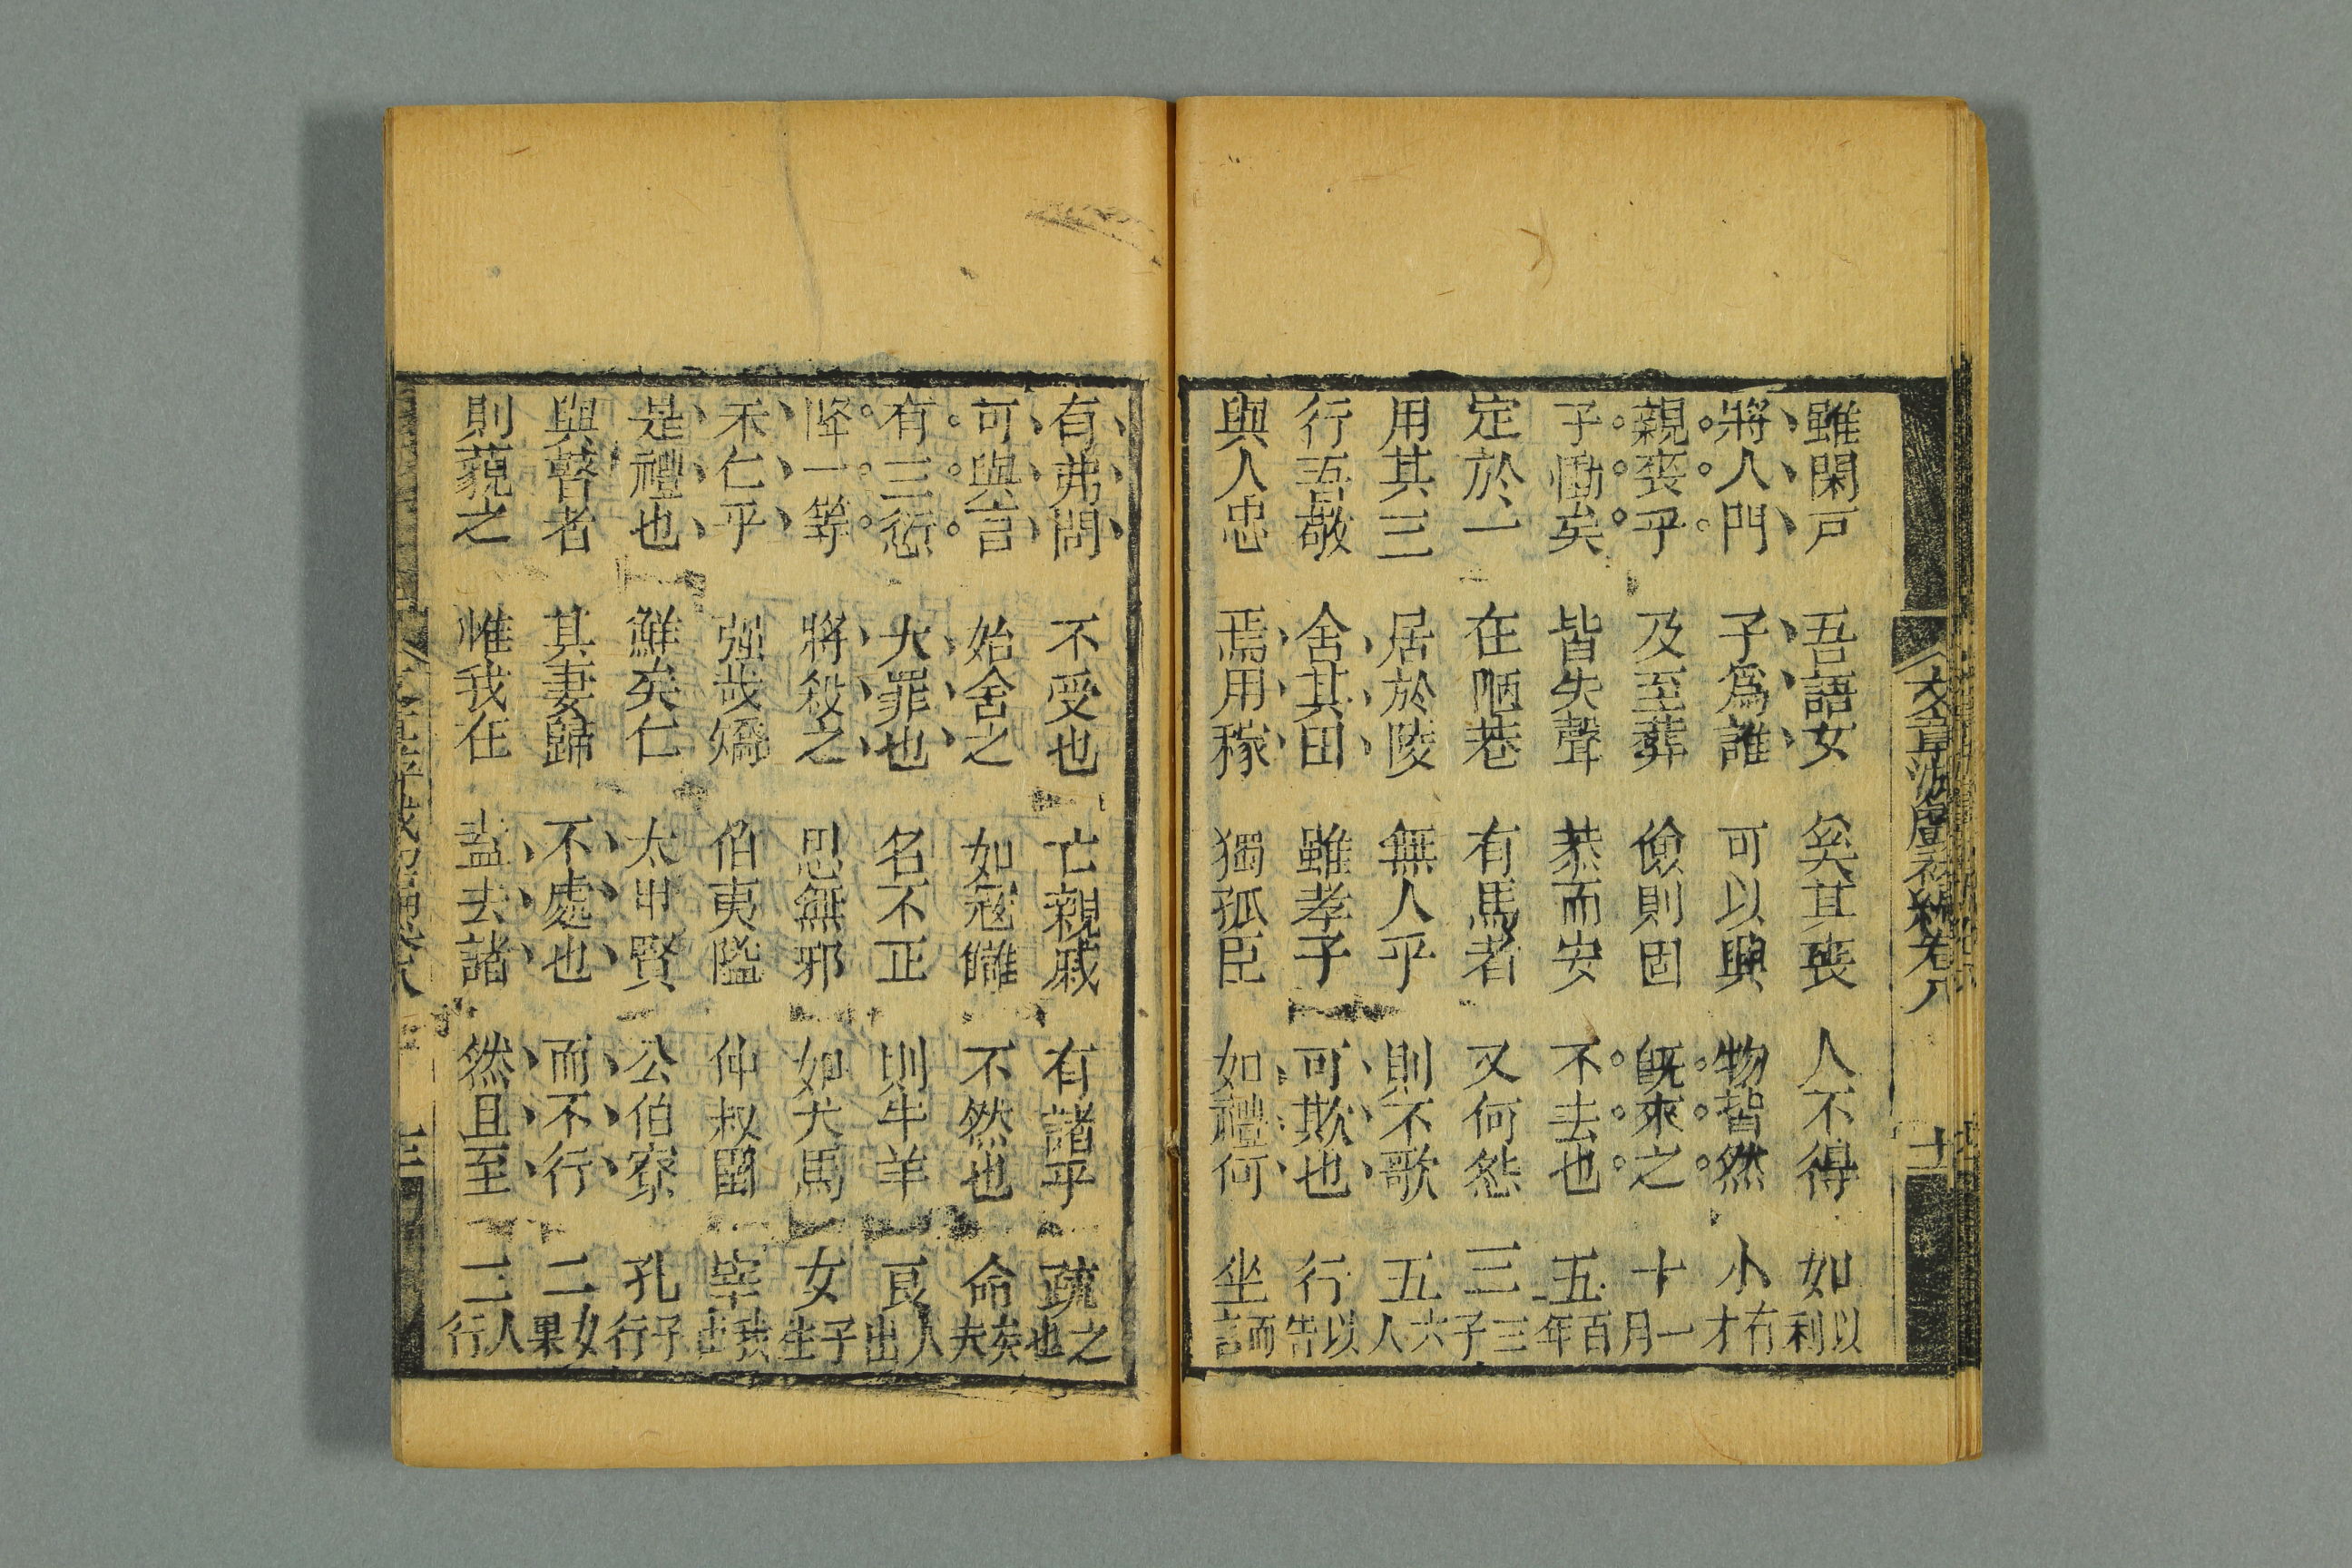 雖閑戶　吾語女　奚其喪　人不得　如以利
將入門　子為誰　可以興　物皆然　小有才
親喪乎　及至葬　儉則固　既來之　十一月
子慟矣　皆失聲　恭而安　不去也　五百年
定於一　在陋巷　有馬者　又何怨　三三子
用其三　居於陵　無人乎　則不歌　五六人
行吾敬　舍其田　雖孝子　可欺也　行以告
與人忠　焉用稼　獨孤臣　如禮何　坐而言
有弗問　不受也　亡親戚　有諸乎　疏之也
可與言　始舍之　如寇讎　不然也　命矣夫
有三愆　大罪也　名不正　則牛羊　良人出
降一等　將殺之　思無邪　如犬馬　女子生
不仁乎　強哉矯　伯夷隘　仲叔圉　宰我
是禮也　鮮矣仁　太甲賢　公伯寮　孔子行
與瞽者　其妻歸　不處也　而不行　二女果
則藐之　惟我在　盍去諸　然且至　三人行